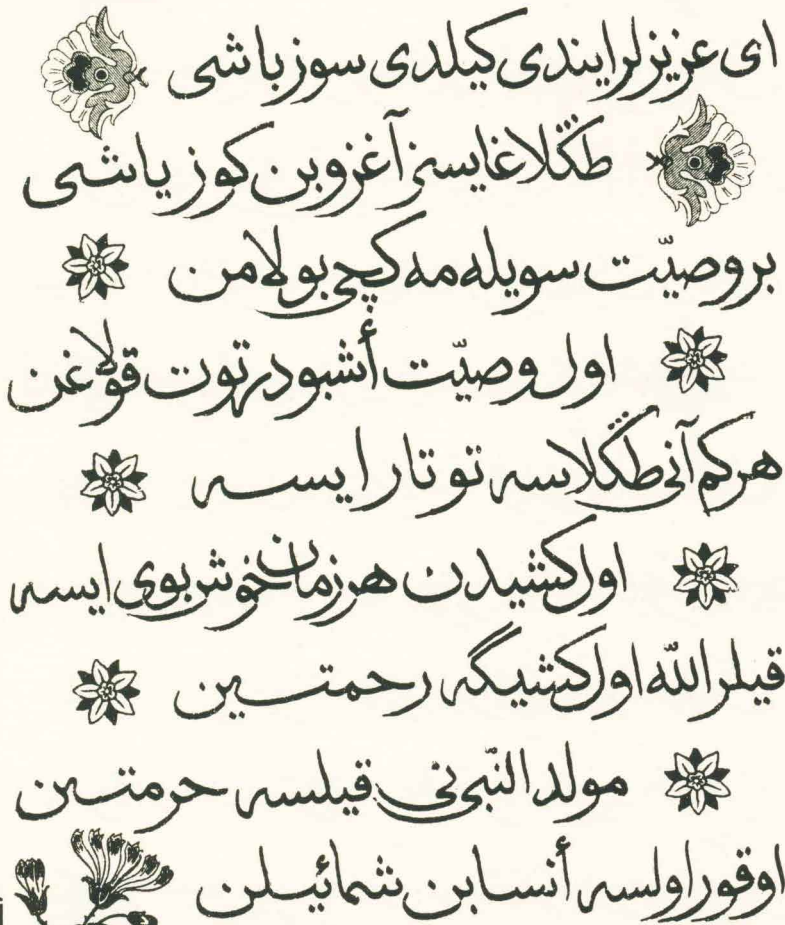 ای عزیزلر ایندی کیلدی سوز باشی
طڭلاغایسز آغزوبن کوز یاشی
بر وصیّت سویله مه کچی بولامن
اول وصیّت أشبودر توت قولاغن
هر کم آنی طڭلاسه توتار ایسه
اول کشیدن هر زمان خوش بوی ایسه
قیلر الله اول کشیگه رحمتین
مولد النّبی نی قیلسه حرمتین
اوقور اولسه أنسابن شمائیلن